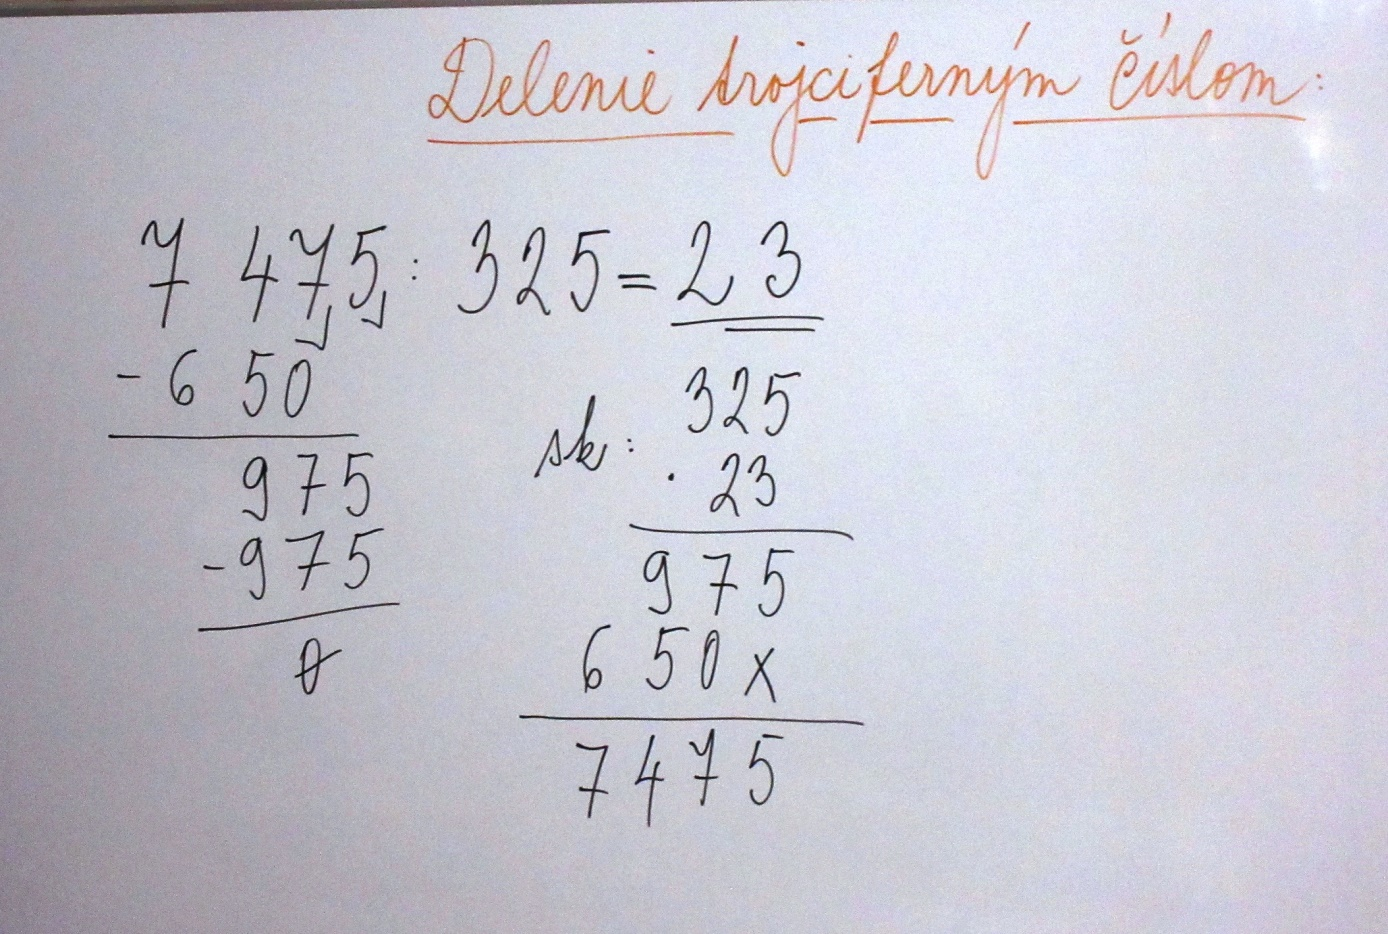 Delenie trojciferným číslom:
7 475 : 325 = 23
- 6 50
975
- 975
0
sk:
325
. 23
975
6 50x
7475